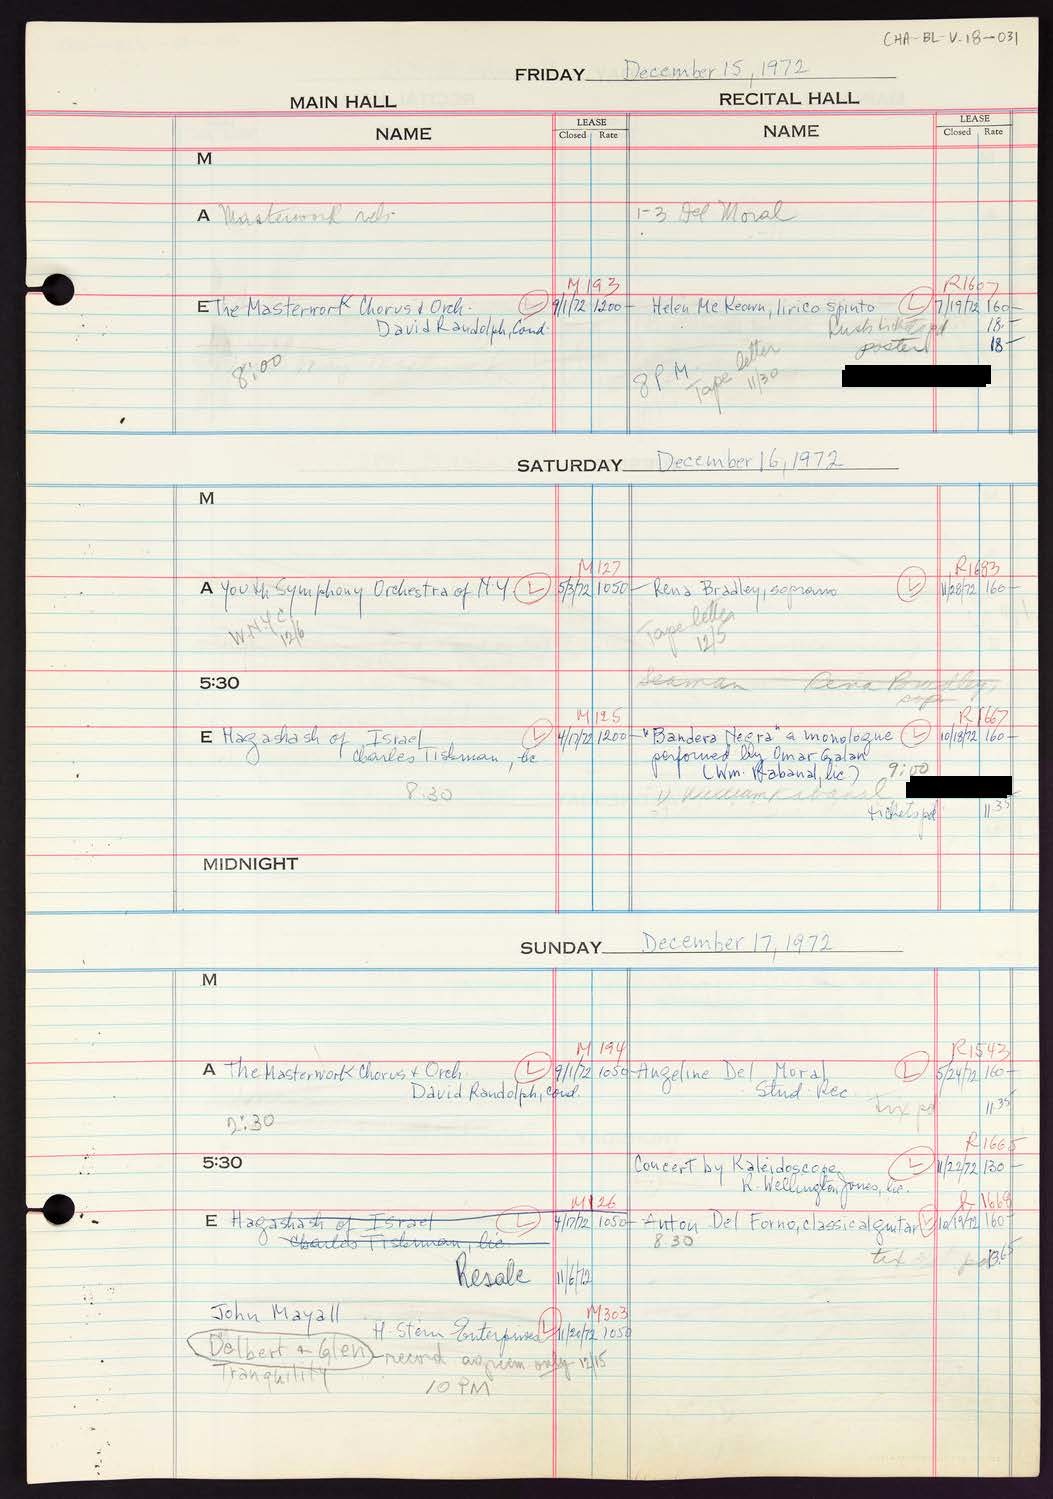 CHA-BL-V.18-031
FRIDAY December 15, 1972
MAIN HALL RECITAL HALL
NAME LEASE Closed Rate NAME LEASE Closed Rate
M
A Masterwork reh. 1-3 Del Moral
M193 R1607
E The Masterwork Chorus & Orch. L 9/1/72 1200- Helen McKeown, lirico spinto L 7/19/72 160-
David Randolph, Cond. 18.-
poster 18-
8:00 8PM Tape letter 11/30
SATURDAY December 16, 1972
M
M127 R1693
A Youth Symphony Orchestra of N.Y. L 5/3/72 1050- Rena Bradley, soprano L 11/28/72 160-
WNYC 12/6 Tape letter 12/5
5:30 Seaman Rena Bradley, sop.
M125 R1667
E Hagashash of Israel L 4/17/72 1200- "Bandera Negra" a monologue L 10/18/72 160-
Charles Tishman, lic performed by Omar Galan
(Wm. Rabanal, lic) 9:00
8:30 William Rabanal
tickets pd 11.35
MIDNIGHT
SUNDAY December 17, 1972
M
M194 R1543
A The Masterwork Chorus & Orch. L 9/1/72 1050- Angeline Del Moral L 5/24/72 160-
David Randolph, cond. Stud. Rec.
2:30 tix pd 11.35
R1665
5:30 Concert by Kaleidoscope L 11/22/72 130-
R. Wellington Jones, lic.
M126 R1668
E Hagashash of Israel L 4/17/72 1050- Anton Del Forno, classical guitar L 10/19/72 160-
Charles Tishman, lic. 8:30
tix pd 13.65
Resale 11/6/72
John Mayall M303
H. Stern Enterprises L 11/20/72 1050
Delbert & Glen - record agreem only 12/15
Tranquility 10 PM